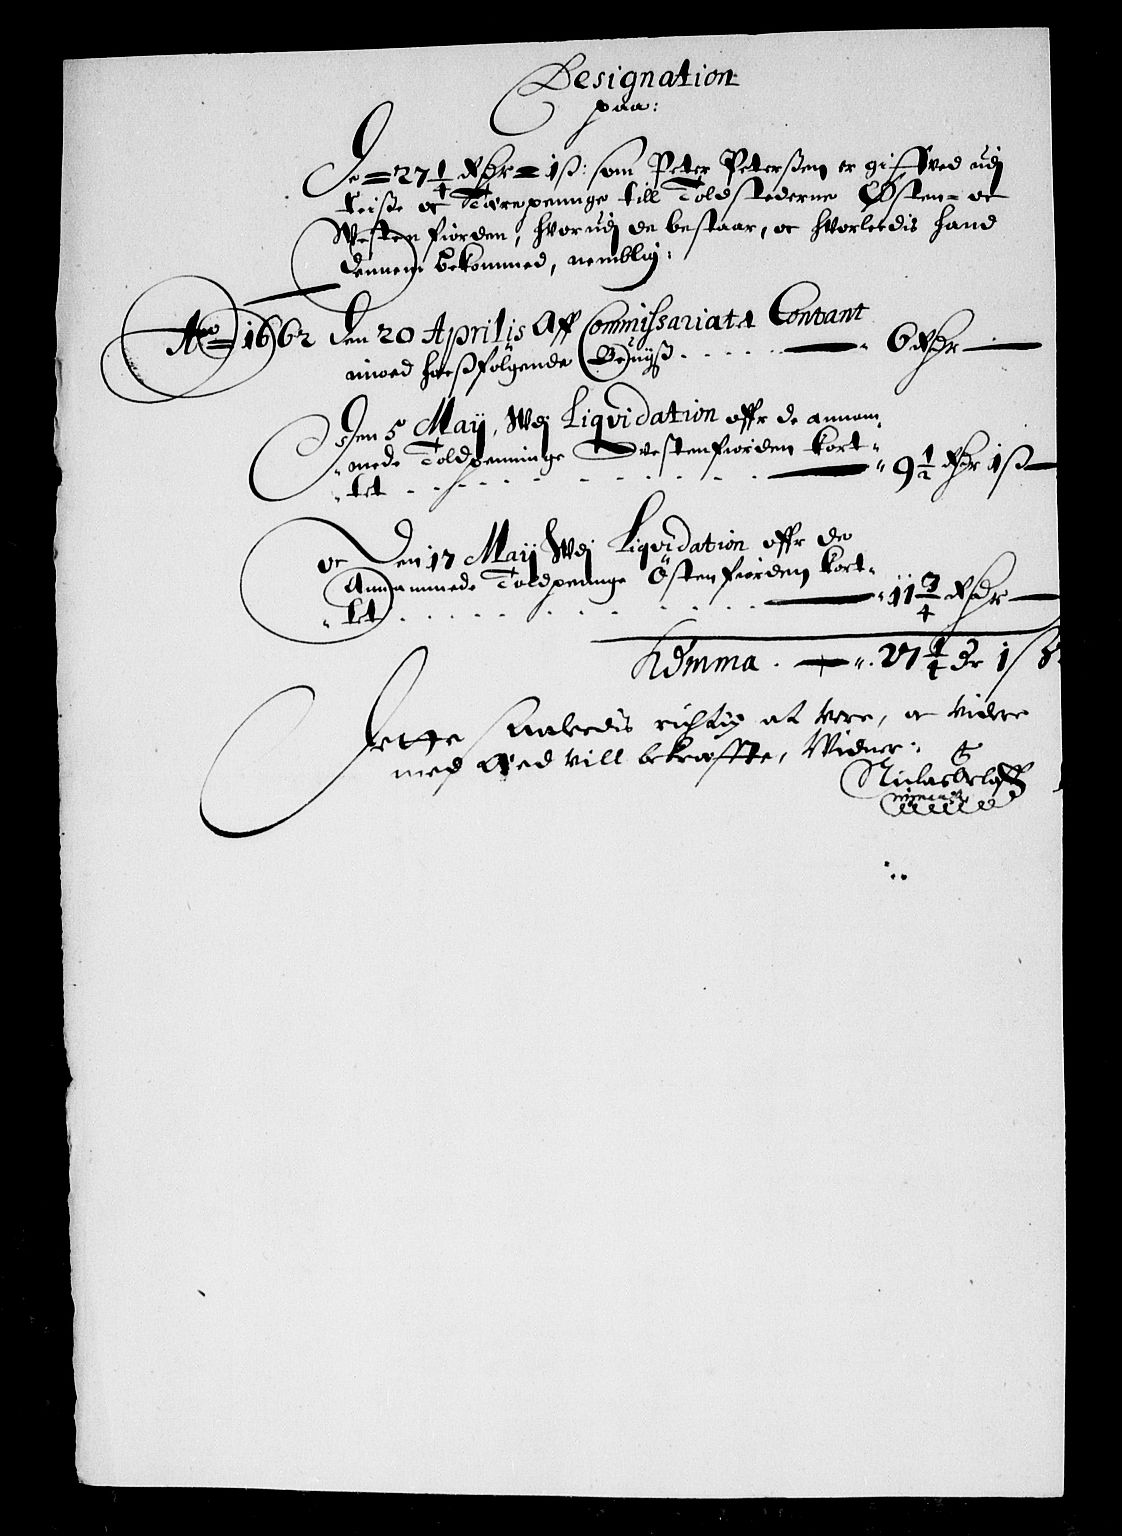 Designation
paa:
De = 27 1/4 Rdr = 1 ß: som Peter Peterßen er giffved udj
Reiße oc Tærepennge till Toldstederne Østen= oc
Westenfiorden, hvorudj de bestaar, oc hvorledis hand
dennem bekommed, nemblig:
Ao = 1662 den 20 Aprilis Aff Commissariatet Contant
imod hoesfølgende Beviiß . . . . . . 6 Rdr
Den 5 Maij, Wdj Liqvidation offr de annam,
mede Toldpenninge Westenfiorden kort-
tet . . . . . . . . . . 9 1/2 Rdr 1 ß
oc Den 17 Maij Wdj Liqvidation offr de
Annammede Toldpennge Østenfiorden kort-
tet . . . . . . . . . . 11 3/4 Rdr
Summa . 27 1/4 dr 1 ß
Dette saaledis richtig at vere, oc videre
med Eed vill bekræffte, Widner:
Niclas